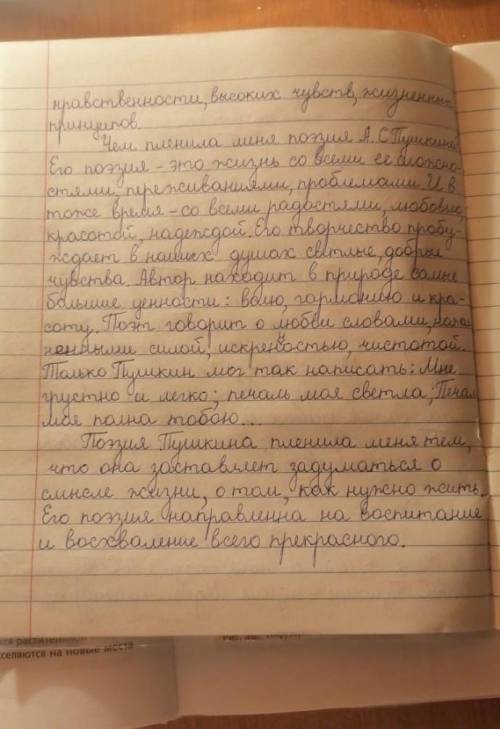 нравственности, высоких чувств, жизненных
принципов.
Чем пленила меня поэзия А.С Пушкина?
Его поэзия - это жизнь со всеми ее сложно-
стями, переживаниями, проблемами. И в
тоже время - со всеми радостями, любовью,
красотой, надеждой. Его творчество пробу-
ждает в наших душах светлые, добрые
чувства. Автор находит в природе самые
большие ценности: волю, гармонию и кра-
соту. Поэт говорит о любви словами,
ненными силой, искренностью, чистотой.
Только Пушкин мог так написать: Мне
грустно и легко; печаль моя светла; Печаль
моя полна тобою...
Поэзия Пушкина пленила меня тем,
что она заставляет задуматься о
смысле жизни, о том, как нужно жить.
Его поэзия направленна на воспитание
и восхваление всего прекрасного.
селяются на новые места